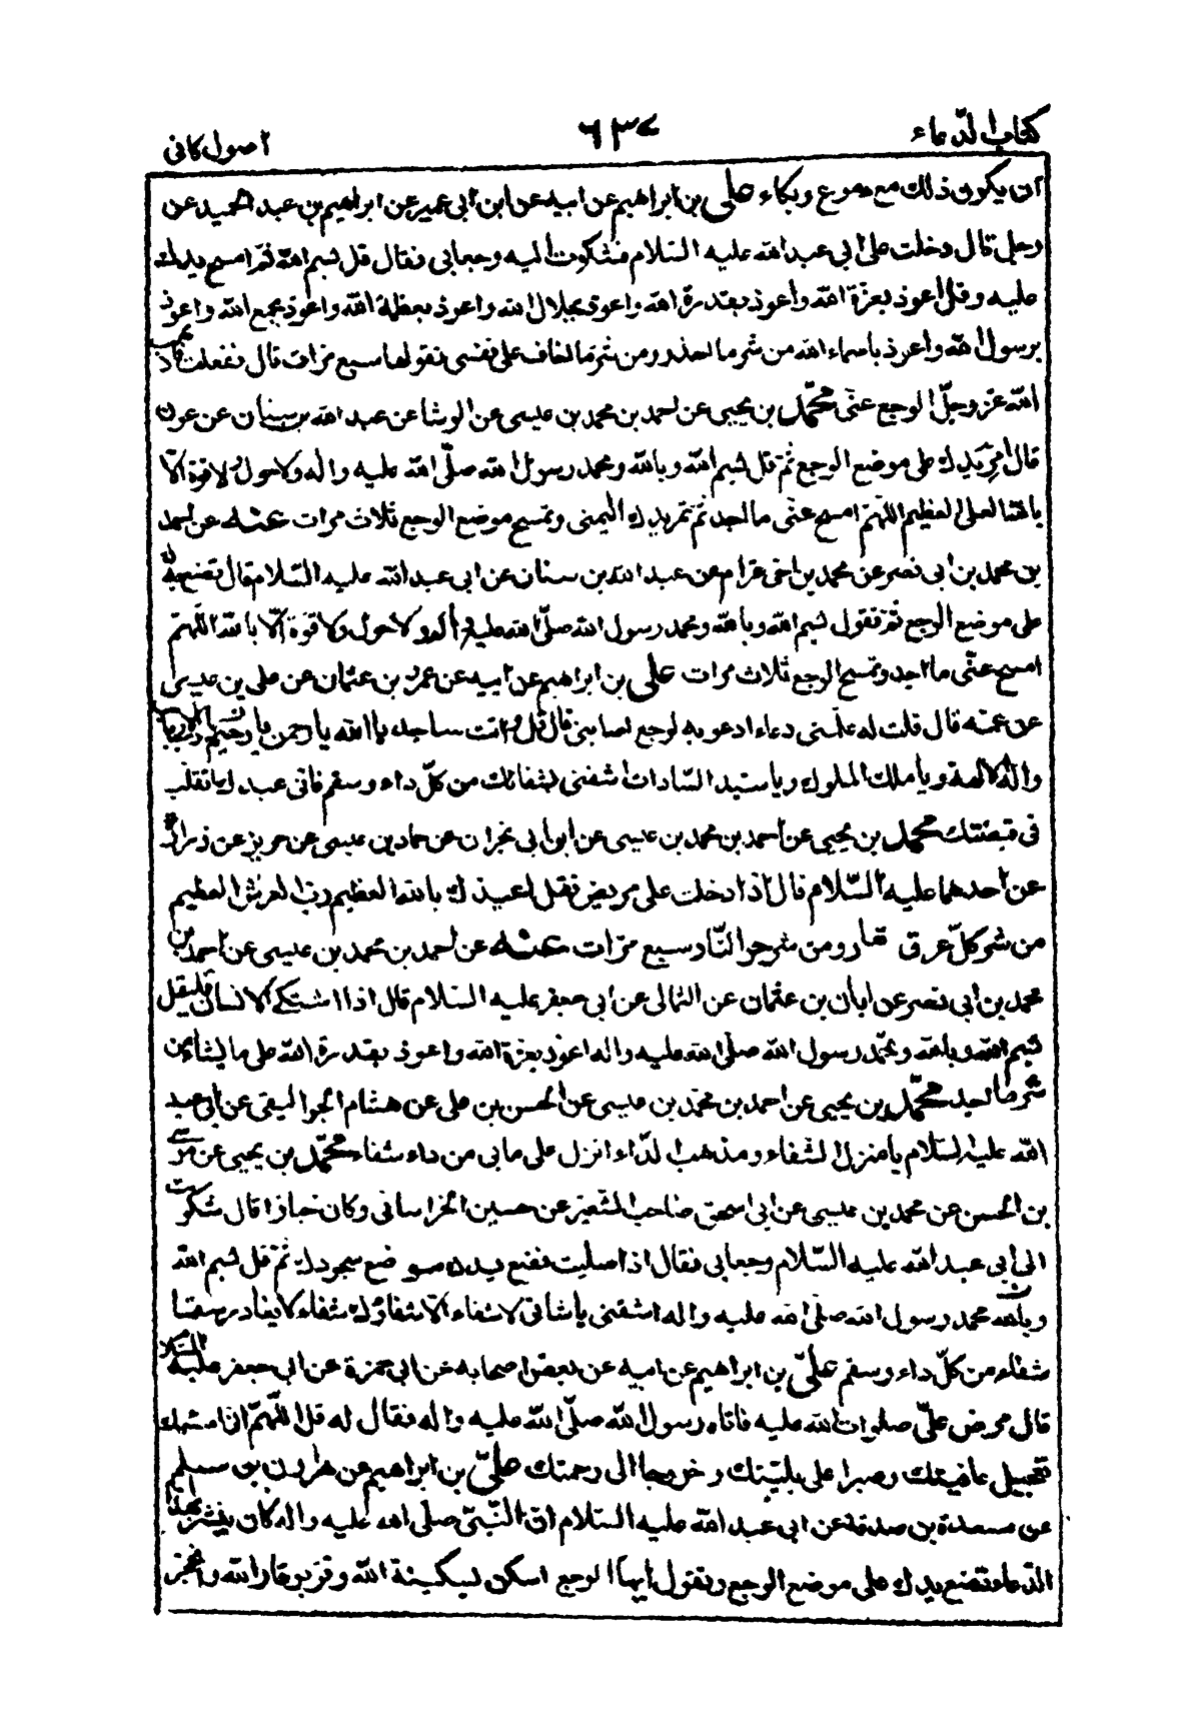 كتاب الدّعاء ٦٣٧ اصول كافى
ان يكون ذلك مع دموع وبكاء على بن ابراهيم عن ابيه عن ابن ابى عمير عن ابراهيم بن عبد الحميد عن
رجل قال دخلت على ابى عبد الله عليه السّلام فشكوت اليه وجعابى فقال قل بسم الله ثمّ امسح يدك
عليه وقل اعوذ بعزة الله واعوذ بقدرة الله واعوذ بجلال الله واعوذ بعظمة الله واعوذ بجمع الله واعوذ
برسول الله واعوذ باسماء الله من شر ما احذر ومن شر ما اخاف على نفسى تقولها سبع مرّات قال ففعلت فاذهب
الله عزّ وجلّ الوجع عنّى محمّد بن يحيى عن احمد بن محمد بن عيسى عن الوشا عن عبد الله بن سنان عن عون
قال امرّ يدك على موضع الوجع ثمّ قل بسم الله وبالله ومحمد رسول الله صلّى الله عليه واله ولا حول ولا قوة الّا
بالله العلى العظيم اللّهمّ امسح عنّى ما اجد ثمّ تمرّ يدك اليمنى وتمسح موضع الوجع ثلاث مرات عنه عن احمد
بن محمد بن ابى نصر عن محمد بن اخى غرام عن عبد الله بن سنان عن ابى عبد الله عليه السّلام قال تضع يدك
على موضع الوجع ثمّ تقول بسم الله وبالله ومحمد رسول الله صلّى الله عليه واله ولا حول ولا قوة الّا بالله اللّهمّ
امسح عنّى ما اجد وتمسح الوجع ثلاث مرات على بن ابراهيم عن ابيه عن عمرو بن عثمان عن على بن عيسى
عن عمّه قال قلت له علّمنى دعاء ادعو به لوجع اصابنى قال قل وانت ساجد يا الله يا رحمن يا رحيم يا رب الارباب
واله الالهة ويا ملك الملوك ويا سيّد السّادات اشفنى بشفائك من كلّ داء وسقم فانى عبدك اتقلب
فى قبضتك محمد بن يحيى عن احمد بن محمد بن عيسى عن ابن ابى نجران عن حماد بن عيسى عن حريز عن زرارة
عن احدهما عليه السّلام قال اذا دخلت على مريض فقل اعيذك بالله العظيم ربّ العرش العظيم
من شر كلّ عرق نعار ومن شر حر النّار سبع مرّات عنه عن احمد بن محمد بن عيسى عن احمد بن
محمد بن ابى نصر عن ابان بن عثمان عن الثمالى عن ابى جعفر عليه السّلام قال اذا اشتكى الانسان فليقل
بسم الله وبالله ومحمّد رسول الله صلّى الله عليه واله اعوذ بعزة الله واعوذ بقدرة الله على ما يشاء من
شر ما اجد محمّد بن يحيى عن احمد بن محمّد بن عيسى عن الحسن بن على عن هشام الجواليقى عن ابى عبد
الله عليه السّلام يا منزل الشفاء ومذهب الدّاء انزل على ما بى من داء شفاء محمّد بن يحيى عن موسى
بن الحسن عن محمد بن عيسى عن ابى اسحق صاحب الشعير عن حسين الخراسانى وكان خبازا قال شكوت
الى ابى عبد الله عليه السّلام وجعابى فقال اذا صليت فضع يدك موضع سجودك ثمّ قل بسم الله
وبالله محمد رسول الله صلّى الله عليه واله اشفنى يا شافى لا شفاء الّا شفاؤك شفاء لا يغادر سقما
شفاء من كلّ داء وسقم علىّ بن ابراهيم عن ابيه عن بعض اصحابه عن ابى حمزة عن ابى جعفر عليه السّلام
قال مرض علىّ صلوات الله عليه فاتاه رسول الله صلّى الله عليه واله فقال له قل اللّهمّ انى اسئلك
تعجيل عافيتك وصبرا على بليّتك وخروجا الى رحمتك علىّ بن ابراهيم عن هارون بن مسلم
عن مسعدة بن صدقة عن ابى عبد الله عليه السّلام انّ النّبىّ صلّى الله عليه واله كان ينشر بهذا
الدّعاء تضع يدك على موضع الوجع وتقول ايها الوجع اسكن بسكينة الله وقر بوقار الله وانحجز